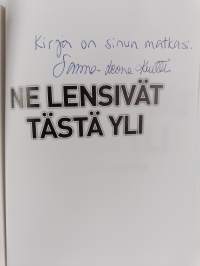 Kirja on sinun matkasi.
Sanna-Leena
NE LENSIVÄT
TÄSTÄ YLI